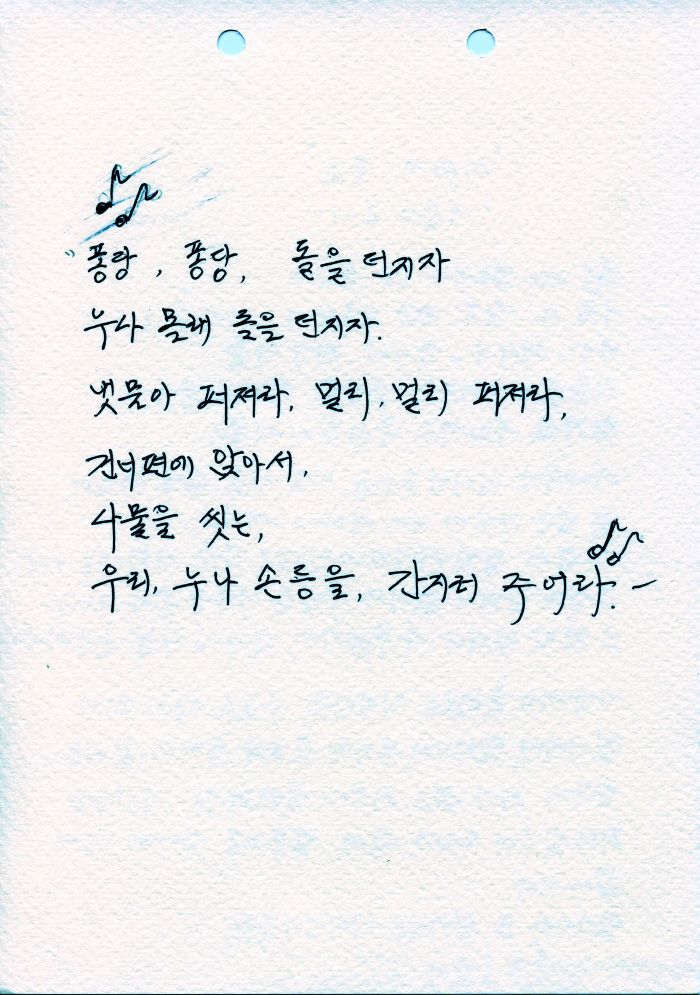 "퐁당, 퐁당, 돌을 던지자
누나 몰래 돌을 던지자.
냇물아 퍼져라, 멀리, 멀리 퍼져라,
건너편에 앉아서,
나물을 씻는,
우리, 누나 손등을, 간지러 주어라. ~